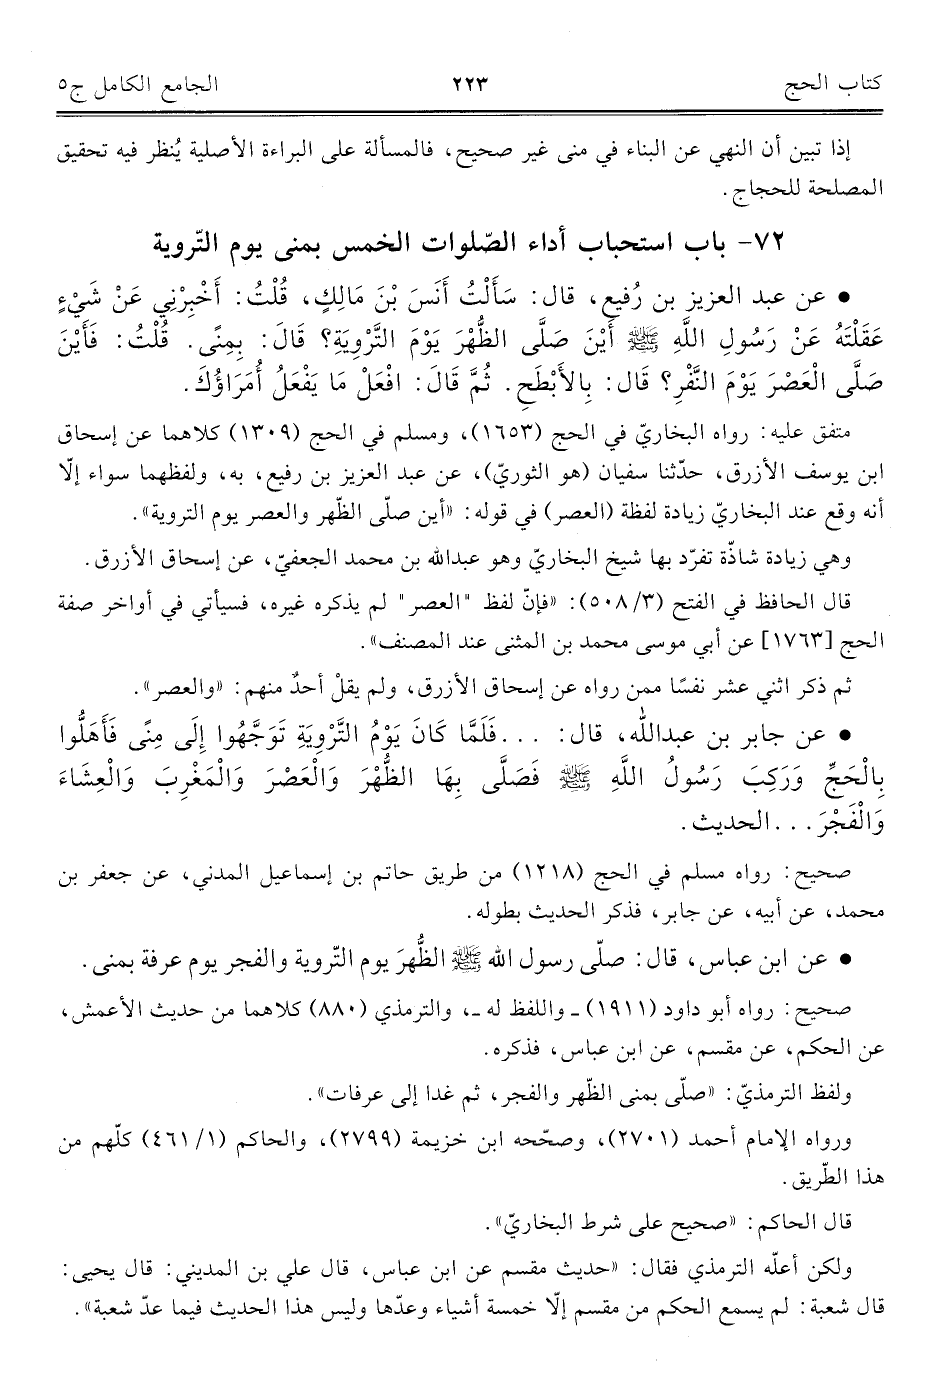 كتاب الحج ٢٢٣ الجامع الكامل ج٥
إذا تبين أن النهي عن البناء في منى غير صحيح، فالمسألة على البراءة الأصلية يُنظر فيه تحقيق
المصلحة للحجاج.
٧٢- باب استحباب أداء الصّلوات الخمس بمنى يوم التّروية
• عن عبد العزيز بن رُفيع، قال: سَأَلْتُ أَنَسَ بْنَ مَالِكٍ، قُلْتُ: أَخْبِرْنِي عَنْ شَيْءٍ
عَقَلْتَهُ عَنْ رَسُولِ اللَّهِ ﷺ أَيْنَ صَلَّى الظُّهْرَ يَوْمَ التَّرْوِيَةِ؟ قَالَ: بِمِنًى. قُلْتُ: فَأَيْنَ
صَلَّى الْعَصْرَ يَوْمَ النَّفْرِ؟ قَالَ: بِالأَبْطَحِ. ثُمَّ قَالَ: افْعَلْ مَا يَفْعَلُ أُمَرَاؤُكَ.
متفق عليه: رواه البخاريّ في الحج (١٦٥٣)، ومسلم في الحج (١٣٠٩) كلاهما عن إسحاق
ابن يوسف الأزرق، حدّثنا سفيان (هو الثوريّ)، عن عبد العزيز بن رفيع، به، ولفظهما سواء إلّا
أنه وقع عند البخاريّ زيادة لفظة (العصر) في قوله: «أين صلّى الظّهر والعصر يوم التروية».
وهي زيادة شاذّة تفرّد بها شيخ البخاريّ وهو عبدالله بن محمد الجعفيّ، عن إسحاق الأزرق.
قال الحافظ في الفتح (٥٠٨/٣): «فإنّ لفظ "العصر" لم يذكره غيره، فسيأتي في أواخر صفة
الحج [١٧٦٣] عن أبي موسى محمد بن المثنى عند المصنف».
ثم ذكر اثني عشر نفسًا ممن رواه عن إسحاق الأزرق، ولم يقلْ أحدٌ منهم: «والعصر».
• عن جابر بن عبدالله، قال: ...فَلَمَّا كَانَ يَوْمُ التَّرْوِيَةِ تَوَجَّهُوا إِلَى مِنًى فَأَهَلُّوا
بِالْحَجِّ وَرَكِبَ رَسُولُ اللَّهِ ﷺ فَصَلَّى بِهَا الظُّهْرَ وَالْعَصْرَ وَالْمَغْرِبَ وَالْعِشَاءَ
وَالْفَجْرَ...الحديث.
صحيح: رواه مسلم في الحج (١٢١٨) من طريق حاتم بن إسماعيل المدني، عن جعفر بن
محمد، عن أبيه، عن جابر، فذكر الحديث بطوله.
• عن ابن عباس، قال: صلّى رسول الله ﷺ الظُّهرَ يوم التّروية والفجر يوم عرفة بمنى.
صحيح: رواه أبو داود (١٩١١) ـ واللفظ له ـ، والترمذي (٨٨٠) كلاهما من حديث الأعمش،
عن الحكم، عن مقسم، عن ابن عباس، فذكره.
ولفظ الترمذيّ: «صلّى بمنى الظّهر والفجر، ثم غدا إلى عرفات».
ورواه الإمام أحمد (٢٧٠١)، وصحّحه ابن خزيمة (٢٧٩٩)، والحاكم (٤٦١/١) كلّهم من
هذا الطّريق.
قال الحاكم: «صحيح على شرط البخاريّ».
ولكن أعلّه الترمذي فقال: «حديث مقسم عن ابن عباس، قال علي بن المديني: قال يحيى:
قال شعبة: لم يسمع الحكم من مقسم إلّا خمسة أشياء وعدّها وليس هذا الحديث فيما عدّ شعبة».